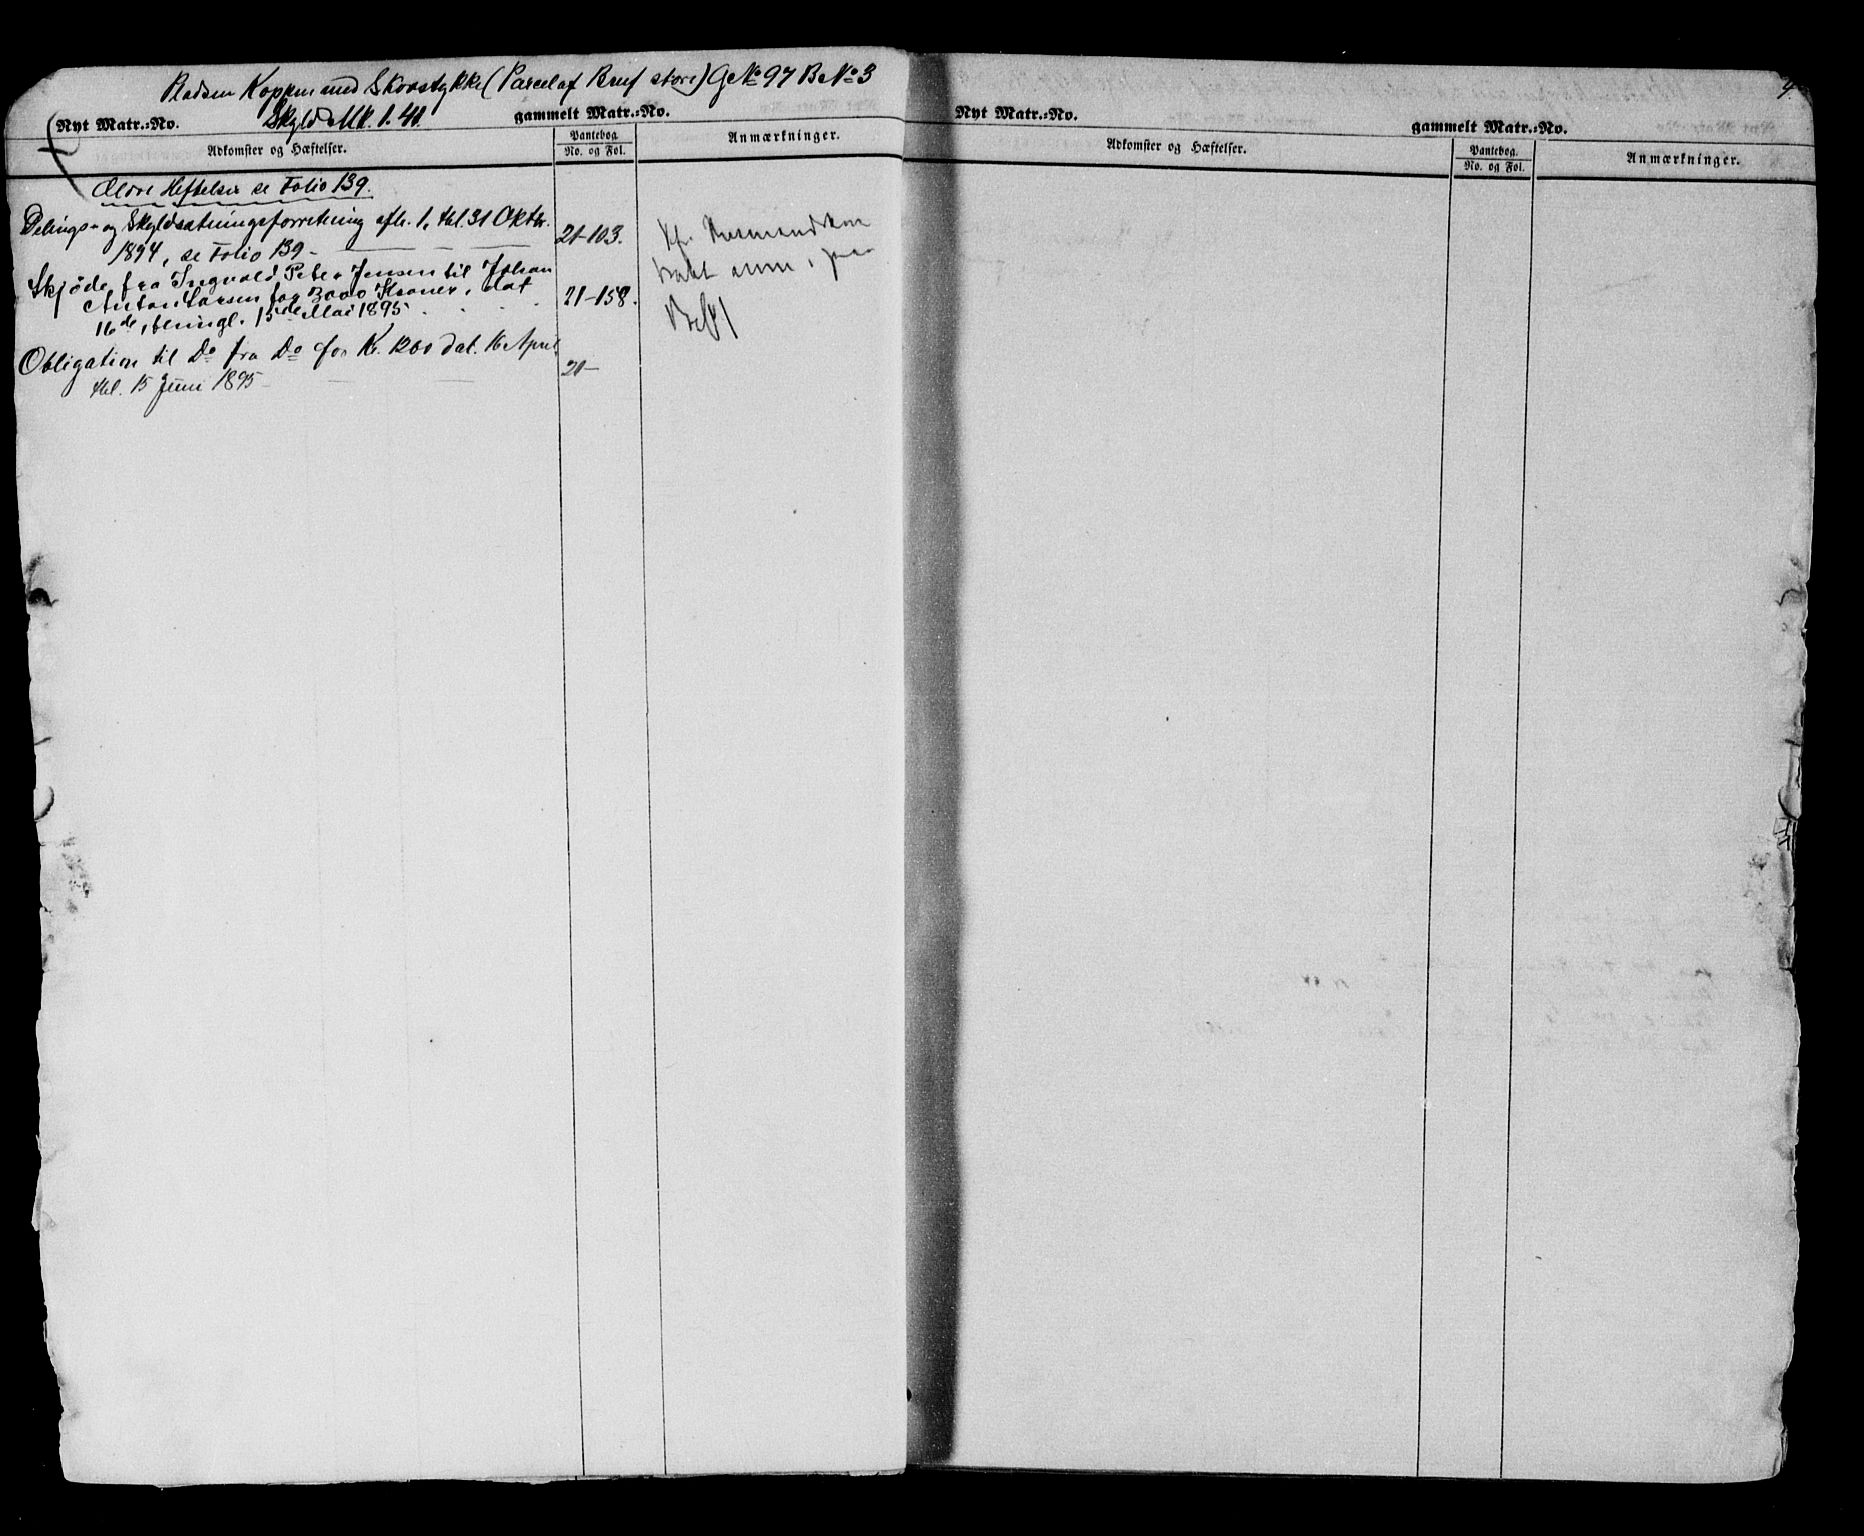 Pladsen Koppen med Skovstykke (Parcel af Bruf store) G. No 97 B. No 3
Nyt Matr.-No. Skyld Mk. 1.41 gammelt Matr.-No.
Adkomster og Hæftelser. Pantebog No. og Fol. Anmærkninger.
Ældre Heftelser se Folio 139.
Delings- og Skyldsætningsforretning afh. 1, thl. 31 Oktbr. 21-103.
1894, se Folio 139 -
Skjöde fra Ingvald Peter Jensen til Johan
Anton Larsen for 3000 Kroner, dat 21-158.
16de, tinngl. 15de Mai 1895
Obligation til Do fra Do for Kr. 1200 dat. 16 April 21-
thl. 15 Juni 1895 -
Kfr.
paa
4.
Nyt Matr.-No. gammelt Matr.-No.
Adkomster og Hæftelser. Pantebog. No. og Fol. Anmærkninger.